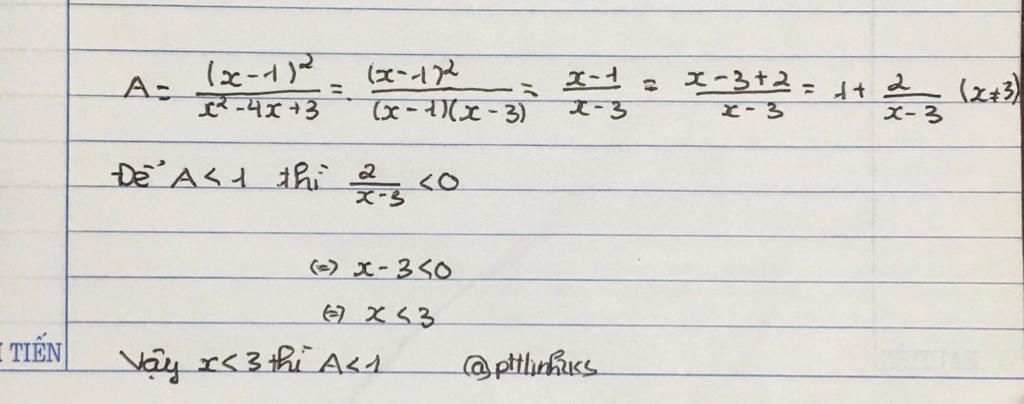 A = (x-1)²/(x²-4x+3) = (x-1)²/((x-1)(x-3)) = (x-1)/(x-3) = (x-3+2)/(x-3) = 1 + 2/(x-3) (x≠3)
Để A < 1 thì 2/(x-3) < 0
(=) x - 3 < 0
(=) x < 3
TIẾN
Vậy x < 3 thì A < 1 @pttlinh